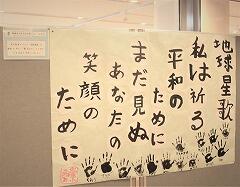 地球星歌
私は祈る
平和の
ために
まだ見ぬ
あなたの
笑顔の
ために